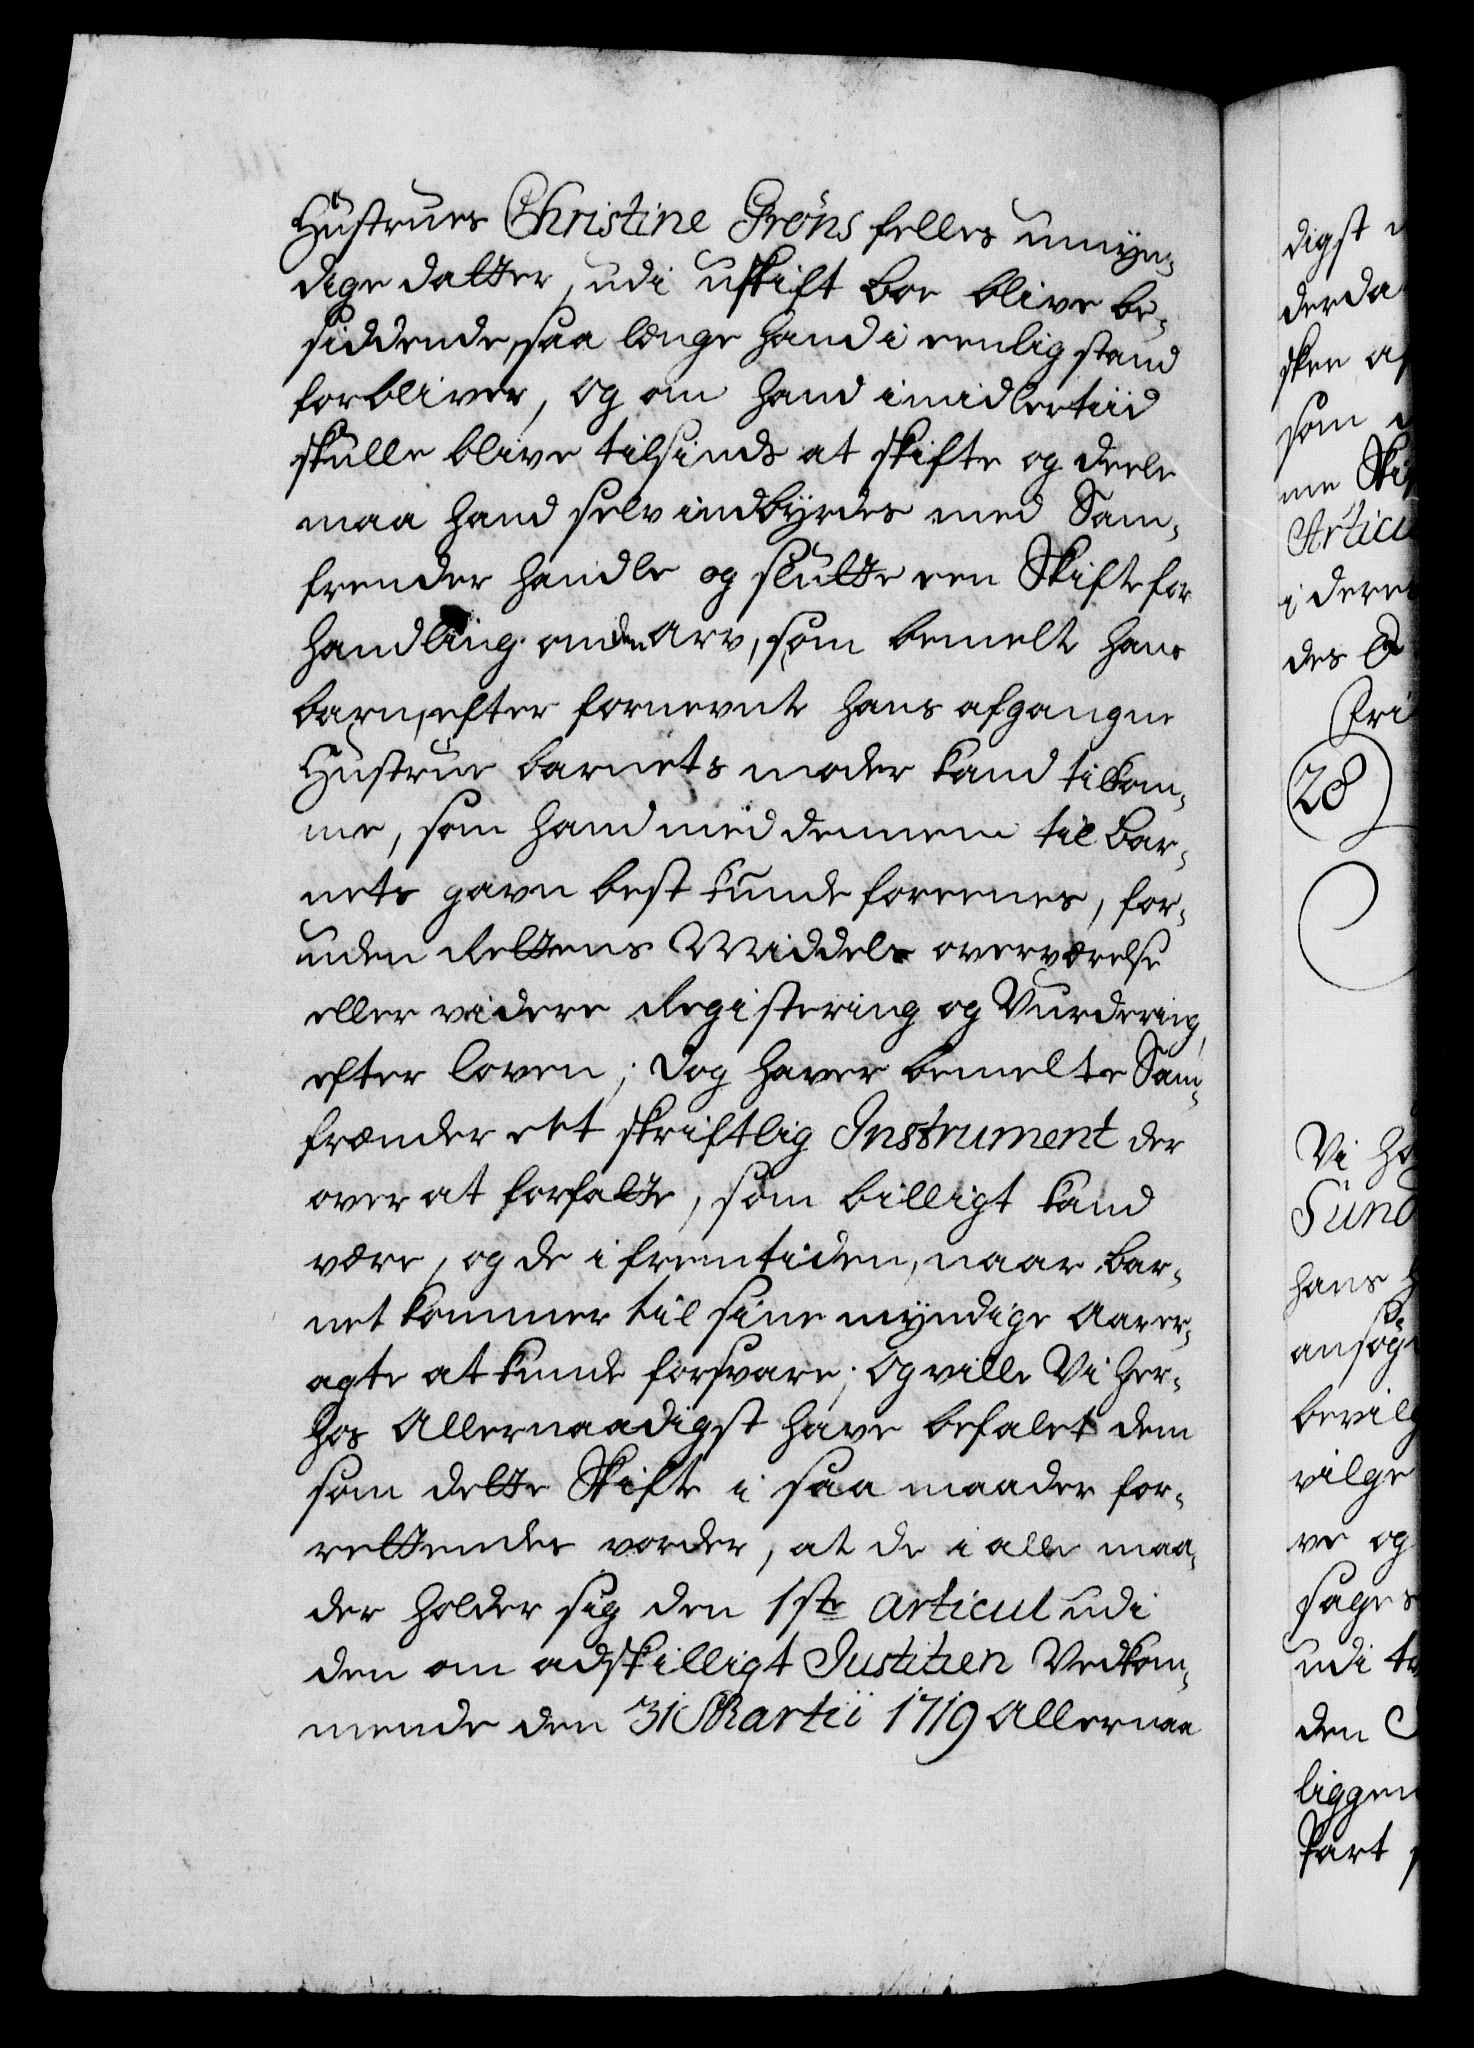 Hustrues Christine Grøns felles umyn-
dige datter, udi uskift boe blive be-
siddende, saa længe hand i eenlig stand
forbliver, og om hand imidlertiid
skulle blive tilsinds at skifte og deele
maa hand selv indbyrdes med Sam-
frender handle og slutte een Skiftefor
handling om den Arv, som bemelte hans
barn, efter fornevnte hans afgangne
Hustrue barnets moder kand tilkom-
me, som hand med dennem til bar-
nets gavn best kunde foreenes, for-
uden Rettens Middels overværelse
eller videre Registering og Vurdering,
efter loven; dog haver bemelte Sam-
frænder ett skriftlig Instrument der
over at forfatte, som billigt kand
være, og de i fremtiden, naar bar-
net kommer til sine myndige Aarer-
agte at kunde forsvare; Og ville Vi her-
hos Allernaadigst have befalet dem
som dette Skifte i saa maader for-
rettendes vorder, at de i alle maa-
der holder sig den 1ste articul udi
den om adskilligt Justitien Vedkom-
mende den 31 Martii 1719 Allernaa
digst
skee
som
Articu
des
28
Vi
hans
ansøg
bevilg
vilge
ve og
sages
udi
den
liggen